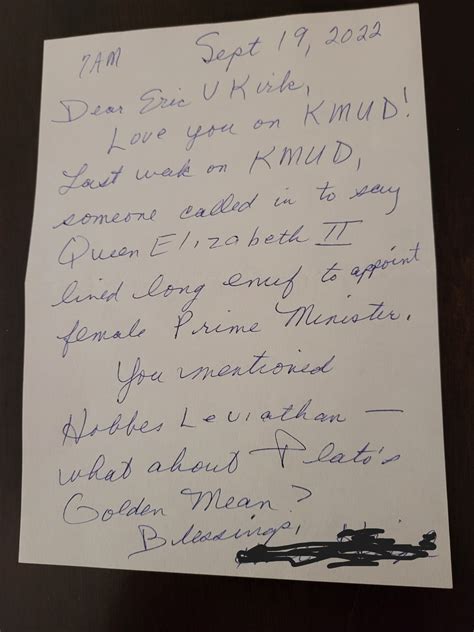 7AM Sept 19, 2022
Dear Eric V Kirk,
Love you on KMUD!
Last week on KMUD,
someone called in to say
Queen Elizabeth II
lived long enuf to appoint
female Prime Minister.
You mentioned
Hobbes Leviathan —
what about Plato's
Golden Mean?
Blessings,